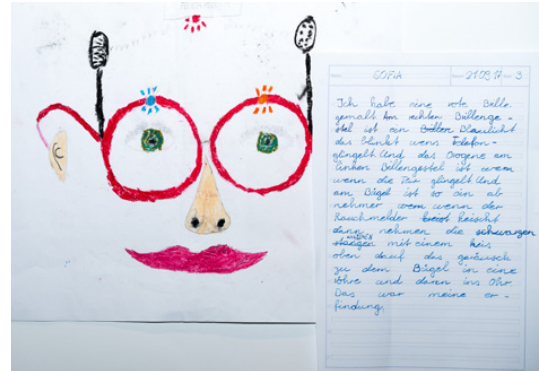 SOFIA 21.09.17 3
Ich habe eine rote Brille
gemalt Am rechten Brillenge-
stel ist ein Blaulicht
das blinkt wens Telefon-
glingelt Und das Orogene am
linken Brillengestel ist wem
wenn die Tür glingelt Und
am Bügel ist so ein ab
nehmer wenn der
Rauchmelder kreischt
dann nehmen die schwarzen
mit einem kreis
oben dauf das geräusch
zu dem Bügel in eine
und dann ins Ohr
Das war meine er-
findung.